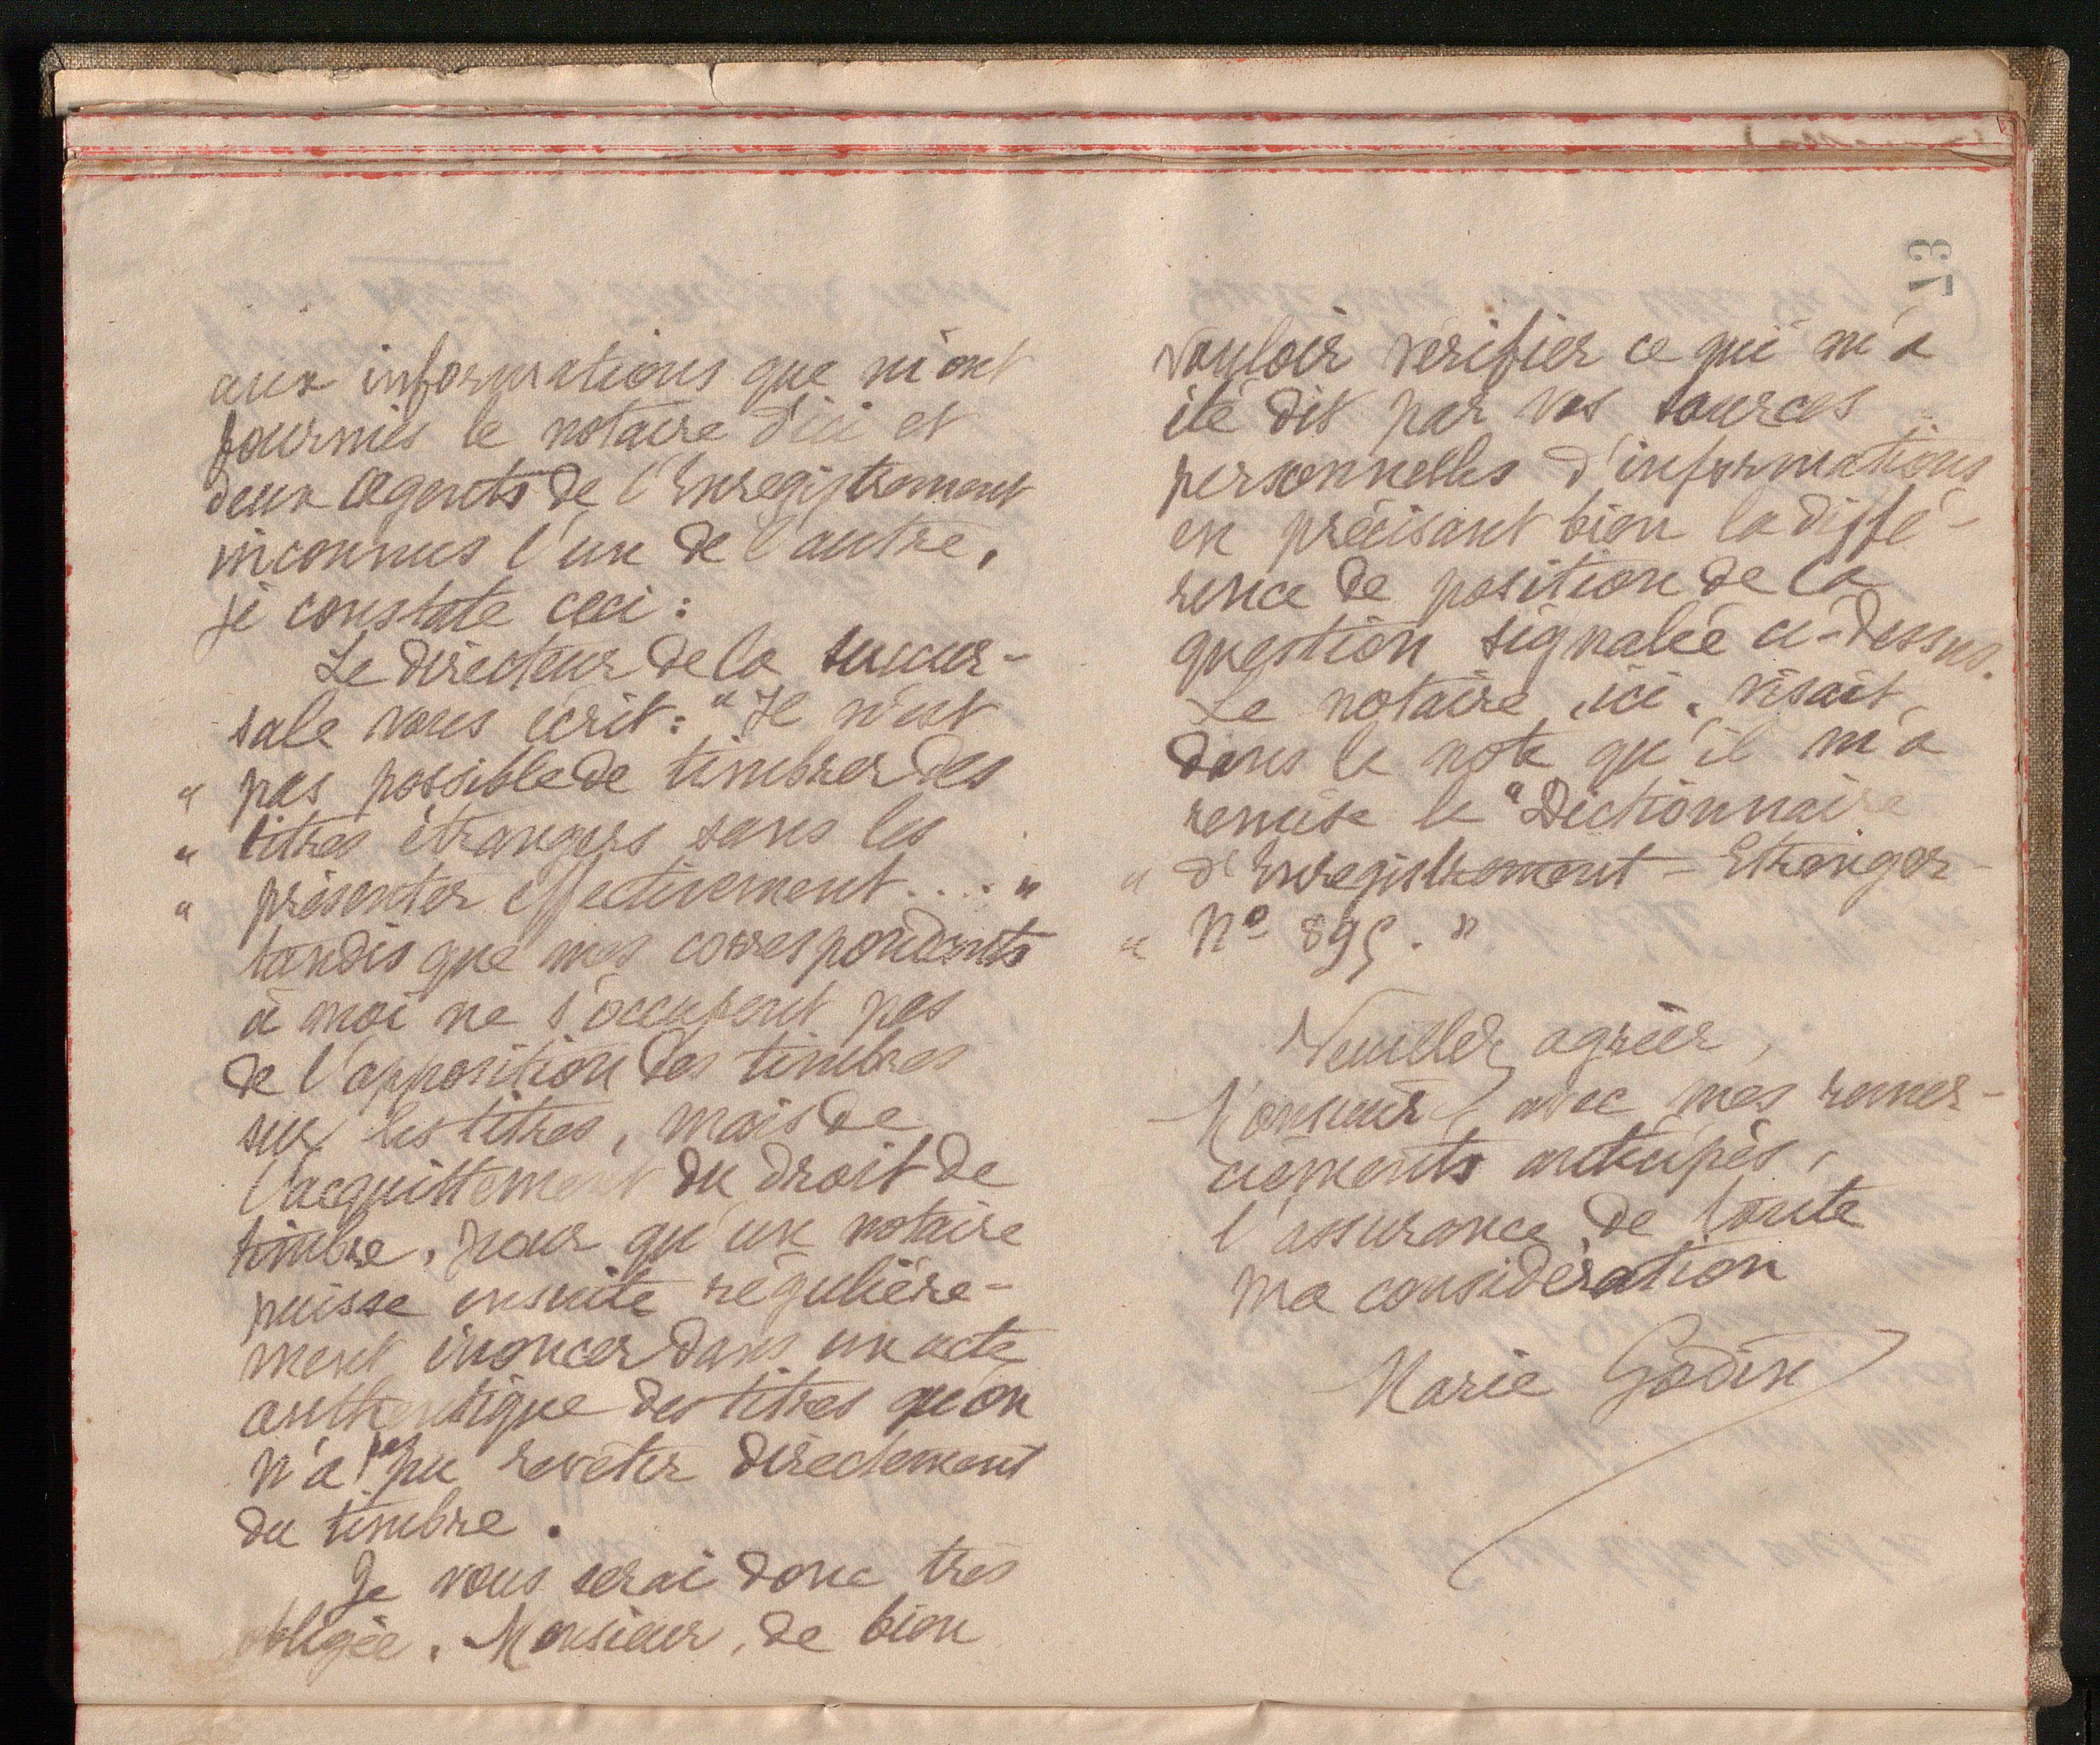 aux informations que m'ont
fournies le notaire d'ici et
deux agents de l'Enregistrement
inconnus l'un de l'autre,
je constate ceci :
Le directeur de la succur-
sale vous écrit : " Il n'est
" pas possible de timbrer des
" titres étrangers sans les
" présenter effectivement.... "
tandis que mes correspondants
à moi ne s'occupent pas
de l'apposition des timbres
sur les titres, mais de
l'acquittement du droit de
timbre, pour qu'un notaire
puisse ensuite régulière-
ment énoncer dans un acte
authentique des titres qu'on
n'a pas pu revêtir directement
du timbre.
Je vous serai donc très
obligée, Monsieur, de bien
73
vouloir vérifier ce qui m'a
été dit par vos sources
personnelles d'informations
en précisant bien la diffé-
rence de position de la
question signalée ci-dessus.
Le notaire, ici, visait,
dans la note qu'il m'a
remise le " Dictionnaire
" d'Enregistrement - Etranger -
" No 895. "
Veuillez agréer,
Monsieur, avec mes remer-
ciements anticipés,
l'assurance de toute
ma considération
Marie Godin